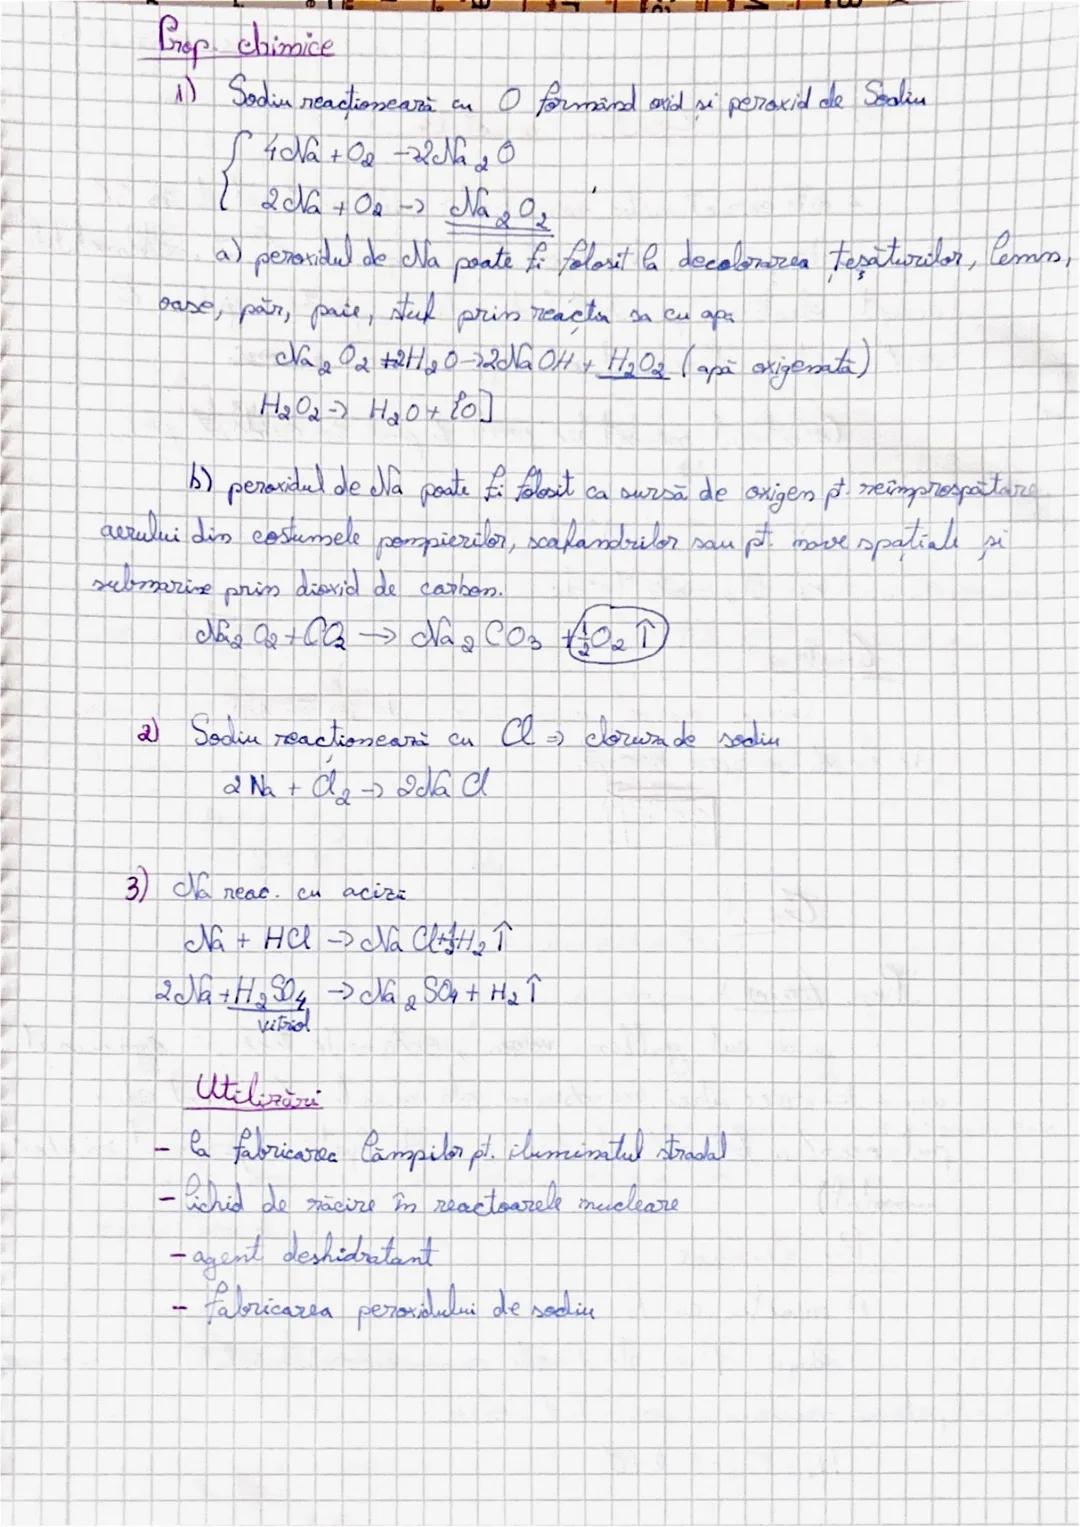 Prop. chimice
1) Sodiu reacționează cu O formând oxid și peroxid de Sodiu
4Na + O2 → 2Na2O
2Na + O2 → Na2O2
a) peroxidul de Na poate fi folosit la decolorarea țesăturilor, lemn,
oase, păr, paie, stuf prin reacția sa cu apa
Na2O2 + 2H2O → 2NaOH + H2O2 (apă oxigenată)
H2O2 → H2O + [O]
b) peroxidul de Na poate fi folosit ca sursă de oxigen pt. reîmprospătare
aerului din costumele pompierilor, scafandrilor sau pt. nave spațiale și
submarine prin dioxid de carbon.
Na2O2 + CO2 → Na2CO3 + 1/2 O2 ↑
2) Sodiu reacționează cu Cl ⇒ clorura de sodiu
2Na + Cl2 → 2NaCl
3) Na reac. cu acizi
Na + HCl → NaCl + 1/2 H2 ↑
2Na + H2SO4 → Na2SO4 + H2 ↑
vitriol
Utilizări
- la fabricarea lămpilor pt. iluminatul stradal
- lichid de răcire în reactoarele nucleare
- agent deshidratant
- fabricarea peroxidului de sodiu